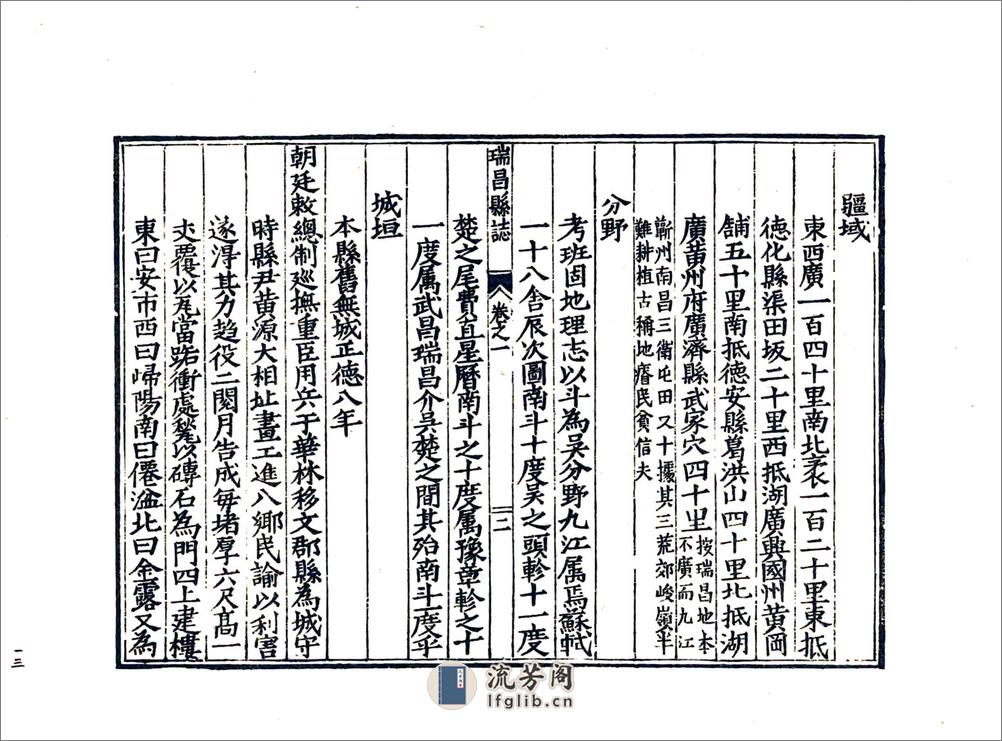 疆域
東西廣一百四十里南北袤一百二十里東抵
德化縣渠田坂二十里西抵湖廣興國州黃岡
舖五十里南抵德安縣葛洪山四十里北抵湖
廣黄州府廣濟縣武家穴四十里按瑞昌地本
不廣而九江
蘄州南昌三衛屯田又十攘其三荒郊峻嶺半
難耕植古稱地瘠民貧信夫
分野
考班固地理志以斗為吴分野九江属焉蘇軾
一十八舎辰次圖南斗十度吴之頭軫十一度
瑞昌縣誌 卷之一 二
楚之尾費直星曆南斗之十度属豫章軫之十
一度属武昌瑞昌介吴楚之間其殆南斗度乎
城垣
本縣舊無城正德八年
朝廷敕總制廵撫重臣用兵于華林移文郡縣為城守
時縣尹黄源大相址畫工進八鄉民諭以利害
遂淂其力趋役二閱月告成每堵厚六尺髙一
丈覆以瓦當路衝處甃以磚石為門四上建樓
東曰安市西曰歸陽南曰僊盆北曰金露又為
一三
流芳阁
lfglib.cn